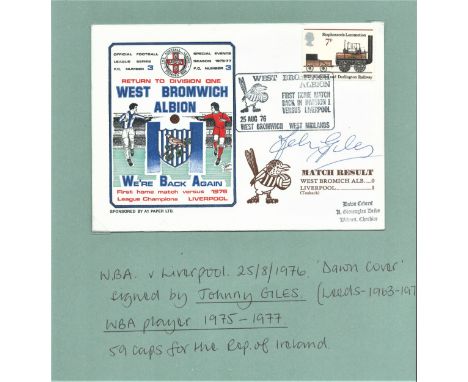 OFFICIAL FOOTBALL
LEAGUE SERIES
NUMBER 3
SPECIAL EVENTS
SEASON 1976-77
F.C. NUMBER 3
RETURN TO DIVISION ONE
WEST BROMWICH
ALBION
WE'RE BACK AGAIN
First home match versus 1976
League Champions LIVERPOOL
SPONSORED BY A1 PAPER LTD.
Stephenson's Locomotion
7p
and Darlington Railway
WEST BROMWICH
ALBION
FIRST HOME MATCH
BACK IN DIVISION 1
VERSUS LIVERPOOL
25 AUG 76
WEST BROMWICH WEST MIDLANDS
John Giles
MATCH RESULT
WEST BROMICH ALB...0
LIVERPOOL 1
(Toshack)
W.B.A. v Liverpool. 25/8/1976. 'Dawn Cover'
signed by Johnny GILES. (Leeds-1963-197
WBA player 1975-1977
59 caps for the Rep. of Ireland